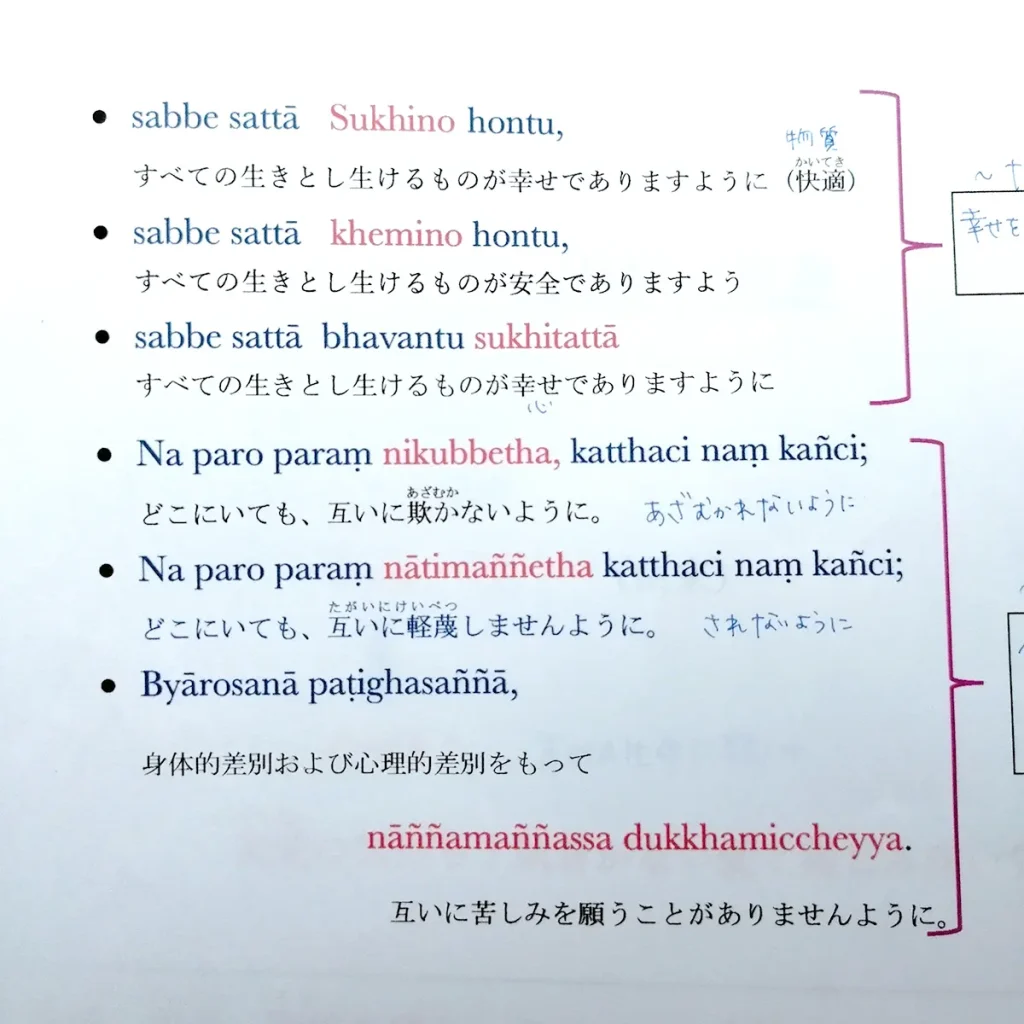 • sabbe sattā Sukhino hontu,
物質
かいてき
すべての生きとし生けるものが幸せでありますように（快適）
• sabbe sattā khemino hontu,
幸せを
すべての生きとし生けるものが安全でありますよう
• sabbe sattā bhavantu sukhitattā
すべての生きとし生けるものが幸せでありますように
心
• Na paro paraṃ nikubbetha, katthaci naṃ kañci;
あざむか
どこにいても、互いに欺かないように。 あざむかれないように
• Na paro paraṃ nātimaññetha katthaci naṃ kañci;
たがいにけいべつ
どこにいても、互いに軽蔑しませんように。 されないように
• Byārosanā paṭighasaññā,
身体的差別および心理的差別をもって
nāññamaññassa dukkhamiccheyya.
互いに苦しみを願うことがありませんように。